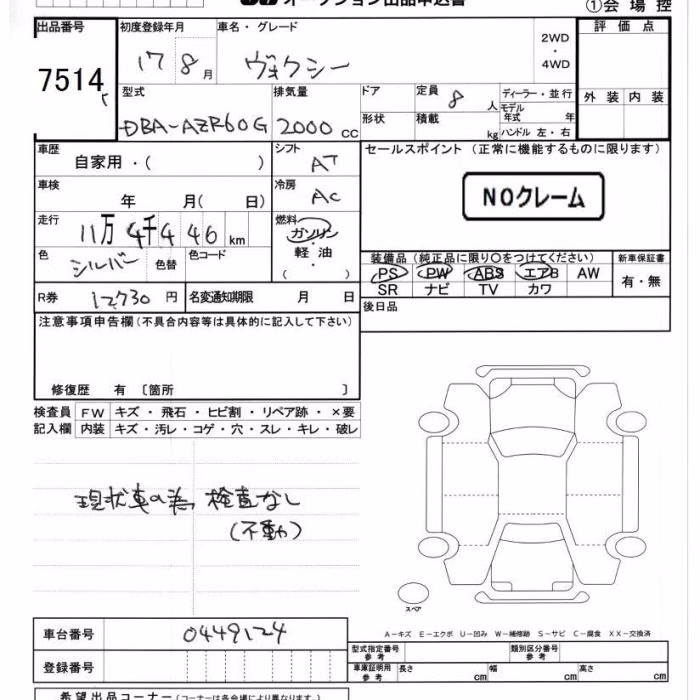 オークション出品申込書
①会場控
出品番号 初度登録年月 車名・グレード 2WD・4WD 評価点
7514 17 8月 ヴォクシー
型式 排気量 ドア 定員 8人 ディーラー・並行 外装 内装
モデル年式 年
DBA-AZR60G 2000cc 形状 積載 kg ハンドル 左・右
車歴 自家用・( ) シフト AT セールスポイント(正常に機能するものに限ります)
車検 年 月( 日) 冷房 AC NOクレーム
走行 11万4千446km 燃料 ガソリン・軽油( )
色 シルバー 色替 色コード 装備品(純正品に限り○をつけてください) 新車保証書
PS PW ABS エアB AW 有・無
SR ナビ TV カワ
R券 12730円 名変通知期限 月 日 後日品
注意事項申告欄(不具合内容等は具体的に記入して下さい)
修復歴 有〔箇所 〕
検査員 FW キズ・飛石・ヒビ割・リペア跡・×要
記入欄 内装 キズ・汚レ・コゲ・穴・スレ・キレ・破レ
現状車の為 検査なし
(不動)
スペア
A−キズ E−エクボ U−凹み W−補修跡 S−サビ C−腐食 XX−交換済
車台番号 0449124
型式指定番号 参考 類別区分番号 参考
登録番号 車庫証明用 参考 長さ cm 幅 cm 高さ cm
希望出品コーナー(コーナーは各会場により異なります)